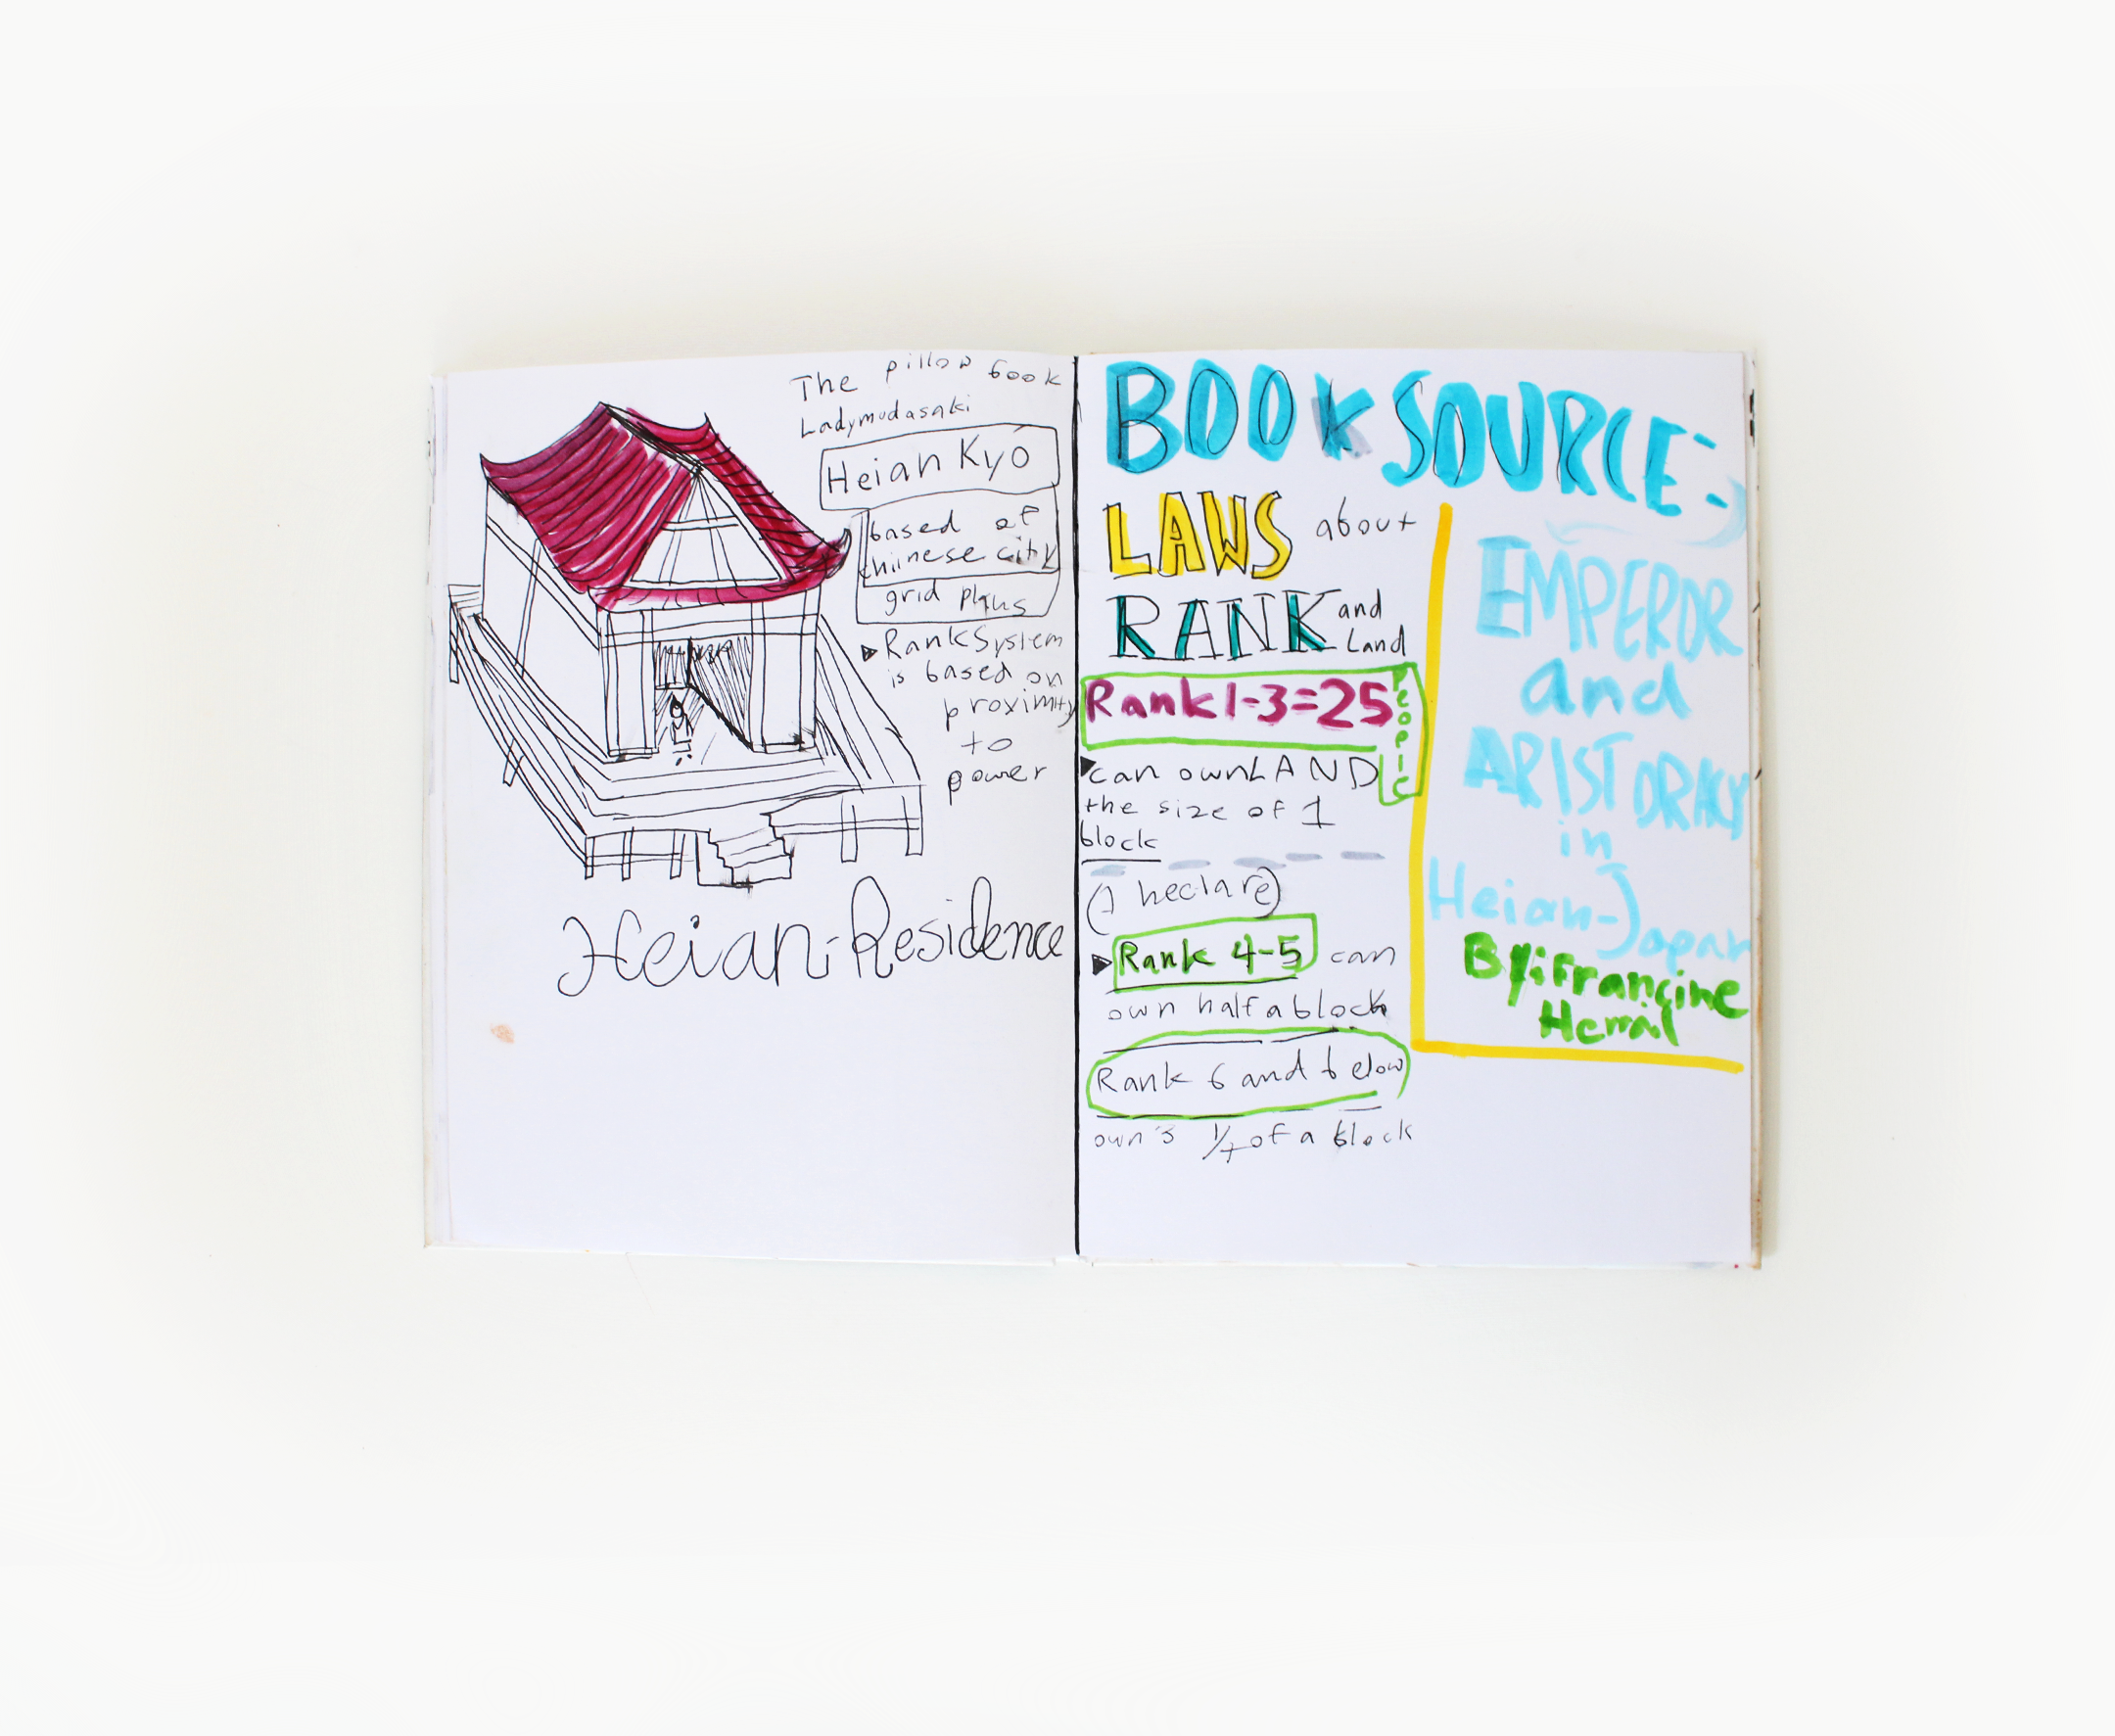 The pillow book
Ladymudasaki
Heian Kyo
based of
chiinese city
grid plans
Rank System
is based on
proximity
to
power
Heian-Residence
BOOK SOURCE:
LAWS about
RANK and
Land
Rank 1-3=25 People
can own LAND
the size of 1
block
(1 heclare)
Rank 4-5 can
own half a block
Rank 6 and below
own's of a block
EMPEROR
and
ARISTORKACY
in
Heian-
Japan
By: Francine
Herail